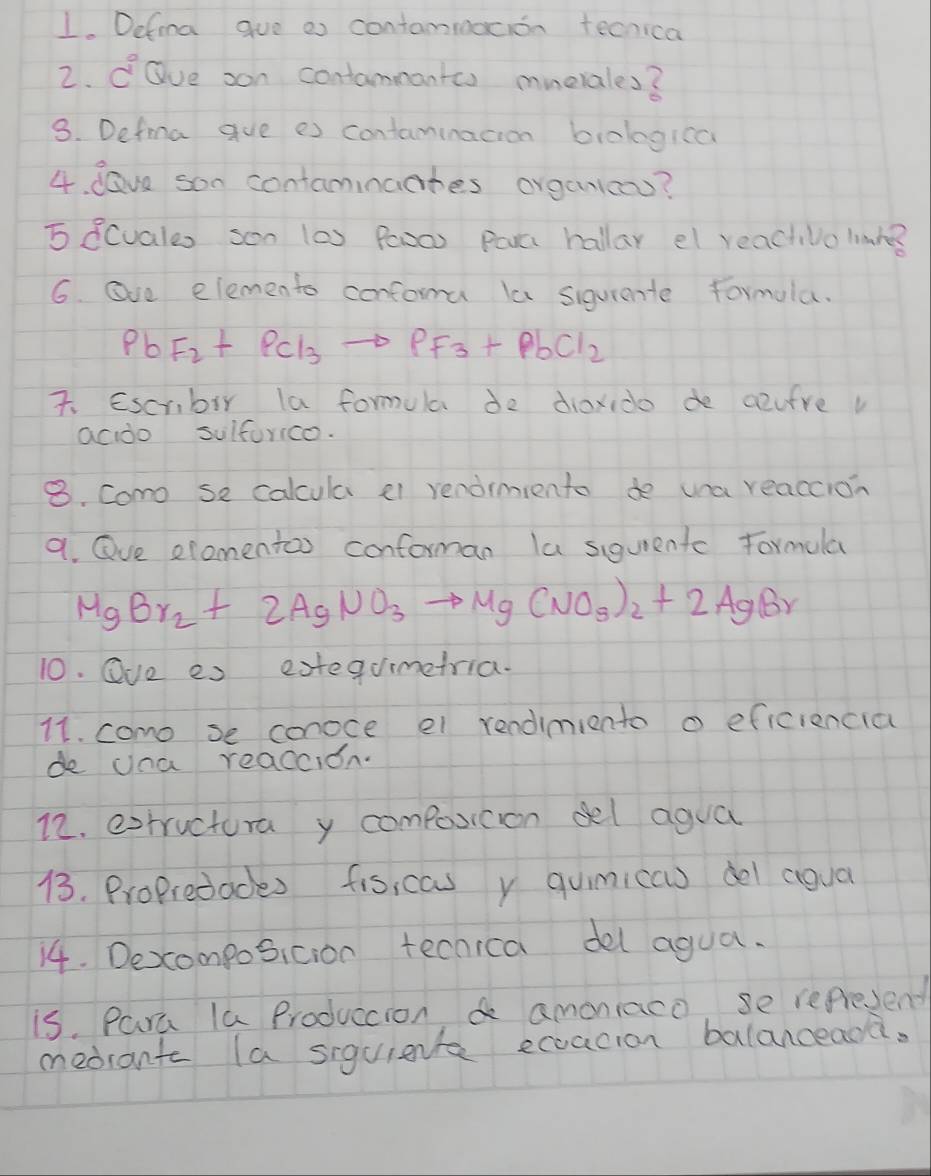 1. Defina que es contaminación tecnica
2. ¿Que son contaminantes minerales?
3. Defina que es contaminacion biologica
4. ¿Que son contaminantes organicos?
5 ¿cuales son los Pasos Para hallar el reactivo limite?
6. Que elemento conforma la siguiente formula.
PbF₂ + PCl₃ → PF₃ + PbCl₂
7. Escribir la formula de dioxido de azufre y
acido sulfurico.
8. Como se calcula el rendimiento de una reaccion
9. Que elementos conforman la siguiente Formula
MgBr₂ + 2AgNO₃ → Mg (NO₃)₂ + 2 AgBr
10. Que es estequimetria.
11. como se conoce el rendimiento o eficiencia
de una reacción.
12. estructura y composicion del agua
13. Propiedades fisicas y quimicas del agua
14. Descomposicion tecnica del agua.
15. Para la Produccion de amoniaco se represent
mediante la siguiente ecuacion balanceada.